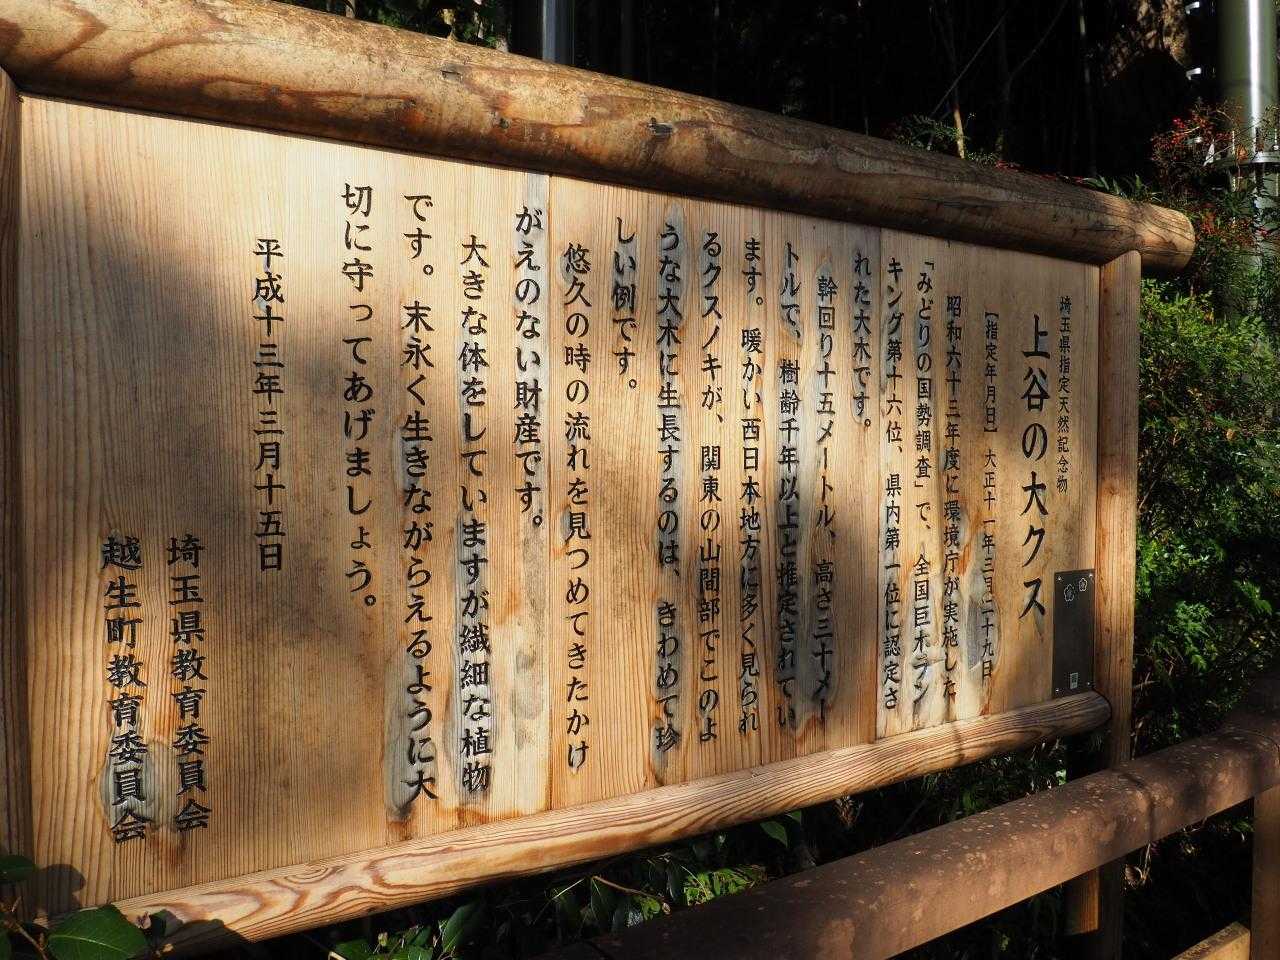 埼玉県指定天然記念物
上谷の大クス
［指定年月日］　大正十一年三月二十九日
昭和六十三年度に環境庁が実施した
「みどりの国勢調査」で、全国巨木ラン
キング第十六位、県内第一位に認定さ
れた大木です。
幹回り十五メートル、高さ三十メー
トルで、樹齢千年以上と推定されてい
ます。暖かい西日本地方に多く見られ
るクスノキが、関東の山間部でこのよ
うな大木に生長するのは、きわめて珍
しい例です。
悠久の時の流れを見つめてきたかけ
がえのない財産です。
大きな体をしていますが繊細な植物
です。末永く生きながらえるように大
切に守ってあげましょう。
平成十三年三月十五日
埼玉県教育委員会
越生町教育委員会